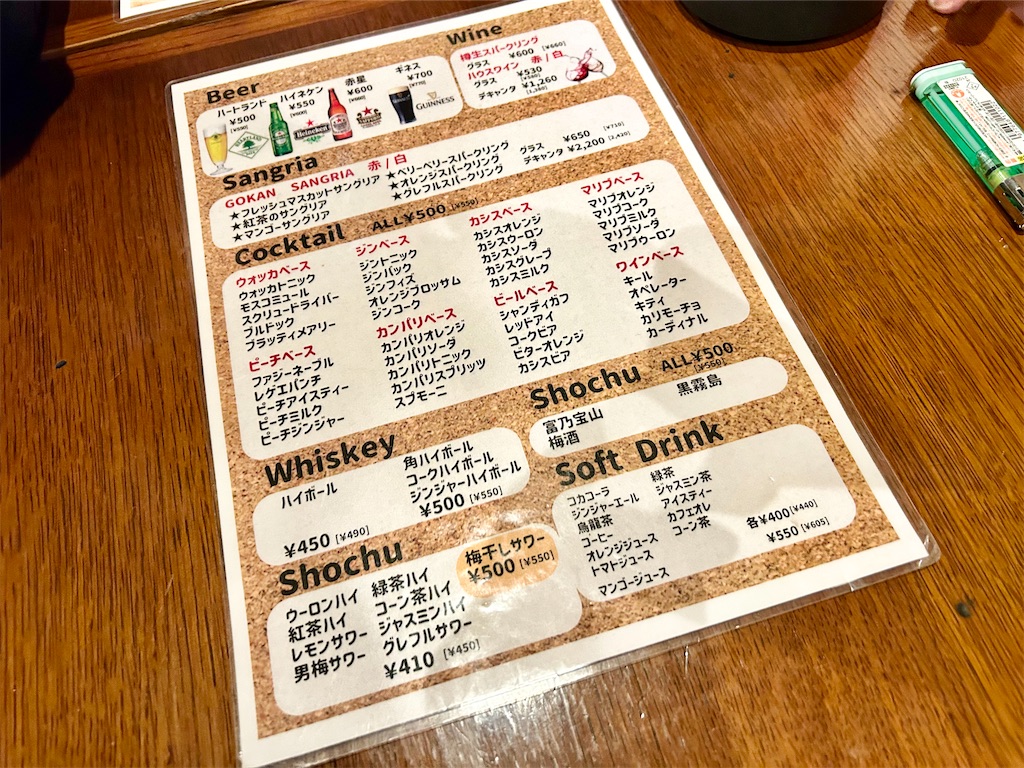 Beer
ハートランド
¥500
[¥550]
ハイネケン
¥550
赤星
¥600
ギネス
¥700
[¥770]
Heineken
GUINNESS
Wine
樽生スパークリング
グラス ¥600 [¥660]
ハウスワイン 赤/白
グラス ¥530
デキャンタ ¥1,260
Sangria
GOKAN SANGRIA 赤/白
★フレッシュマスカットサングリア
★紅茶のサングリア
★マンゴーサングリア
★ベリーベリースパークリング
★オレンジスパークリング
★グレフルスパークリング
グラス ¥650 [¥710]
デキャンタ ¥2,200 [2,420]
Cocktail ALL¥500 [¥550]
ウォッカベース
ウォッカトニック
モスコミュール
スクリュードライバー
ブルドック
ブラッティメアリー
ピーチベース
ファジーネーブル
レゲエパンチ
ピーチアイスティー
ピーチミルク
ピーチジンジャー
ジンベース
ジントニック
ジンバック
ジンフィズ
オレンジブロッサム
ジンコーク
カンパリベース
カンパリオレンジ
カンパリソーダ
カンパリトニック
カンパリスプリッツ
スプモーニ
カシスベース
カシスオレンジ
カシスウーロン
カシスソーダ
カシスグレープ
カシスミルク
ビールベース
シャンディガフ
レッドアイ
コークビア
ビターオレンジ
カシスビア
マリブベース
マリブオレンジ
マリブコーク
マリブミルク
マリブソーダ
マリブウーロン
ワインベース
キール
オペレーター
キティ
カリモーチョ
カーディナル
Whiskey
ハイボール
¥450 [¥490]
角ハイボール
コークハイボール
ジンジャーハイボール
¥500 [¥550]
Shochu ALL¥500
[¥550]
富乃宝山
梅酒
黒霧島
Shochu
ウーロンハイ
紅茶ハイ
レモンサワー
男梅サワー
緑茶ハイ
コーン茶ハイ
ジャスミンハイ
グレフルサワー
¥410 [¥450]
梅干しサワー
¥500 [¥550]
Soft Drink
コカコーラ
ジンジャーエール
烏龍茶
コーヒー
オレンジジュース
トマトジュース
マンゴージュース
緑茶
ジャスミン茶
アイスティー
カフェオレ
コーン茶
各¥400 [¥440]
¥550 [¥605]